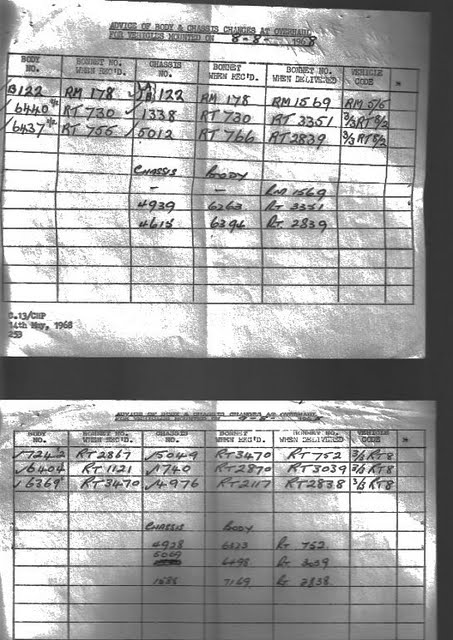 ADVICE OF BODY & CHASSIS CHANGES AT OVERHAUL
FOR VEHICLES MOUNTED ON 8-8- 1968
BODY NO. BONNET NO. WHEN REC'D. CHASSIS NO. BONNET WHEN REC'D. BONNET NO. WHEN DELIVERED VEHICLE CODE
B122 RM 178 122 RM 178 RM 1569 RM 5/6
6440 RT 730 1338 RT 730 RT 3351 3/3 RT 8/2
6437 RT 755 5012 RT 766 RT 2839 3/3 RT 8/2
CHASSIS BODY
- - RM 1569
4939 6263 RT 3351
4615 6394 RT 2839
C.13/CHP
14th May, 1968
253
ADVICE OF BODY & CHASSIS CHANGES AT OVERHAUL
FOR VEHICLES MOUNTED ON
BODY NO. BONNET NO. WHEN REC'D. CHASSIS NO. BONNET WHEN REC'D. BONNET NO. WHEN DELIVERED VEHICLE CODE
7242 RT 2867 5049 RT 3470 RT 752 3/3 RT8
6404 RT 1121 1740 RT 2870 RT 3039 3/3 RT8
6369 RT 3470 4976 RT 2117 RT 2838 3/3 RT8
CHASSIS BODY
4928 6323 RT 752
5009 6498 RT 3039
1588 7169 RT 2838